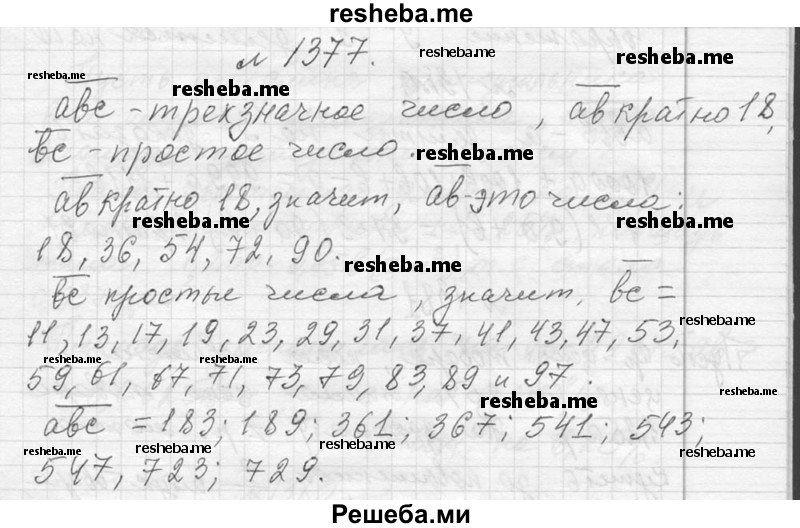 resheba.me
№ 1377.
resheba.me
resheba.me
resheba.me
resheba.me
abc - трехзначное число, ab кратно 18,
bc - простое число.
resheba.me
ab кратно 18, значит, ab - это числа:
resheba.me
resheba.me
18, 36, 54, 72, 90.
resheba.me
bc простые числа, значит, bc =
11, 13, 17, 19, 23, 29, 31, 37, 41, 43, 47, 53,
resheba.me
resheba.me
resheba.me
59, 61, 67, 71, 73, 79, 83, 89 и 97.
resheba.me
resheba.me
abc = 183; 189; 361; 367; 541; 543;
resheba.me
resheba.me
resheba.me
547, 723; 729.
Решеба.ми